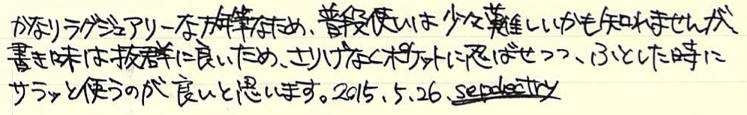 かなりラグジュアリーな万年筆なため、普段使いは少々難しいかも知れませんが、
書き味は抜群に良いため、さりげなくポケットに忍ばせつつ、ふとした時に
サラッと使うのが良いと思います。2015.5.26.